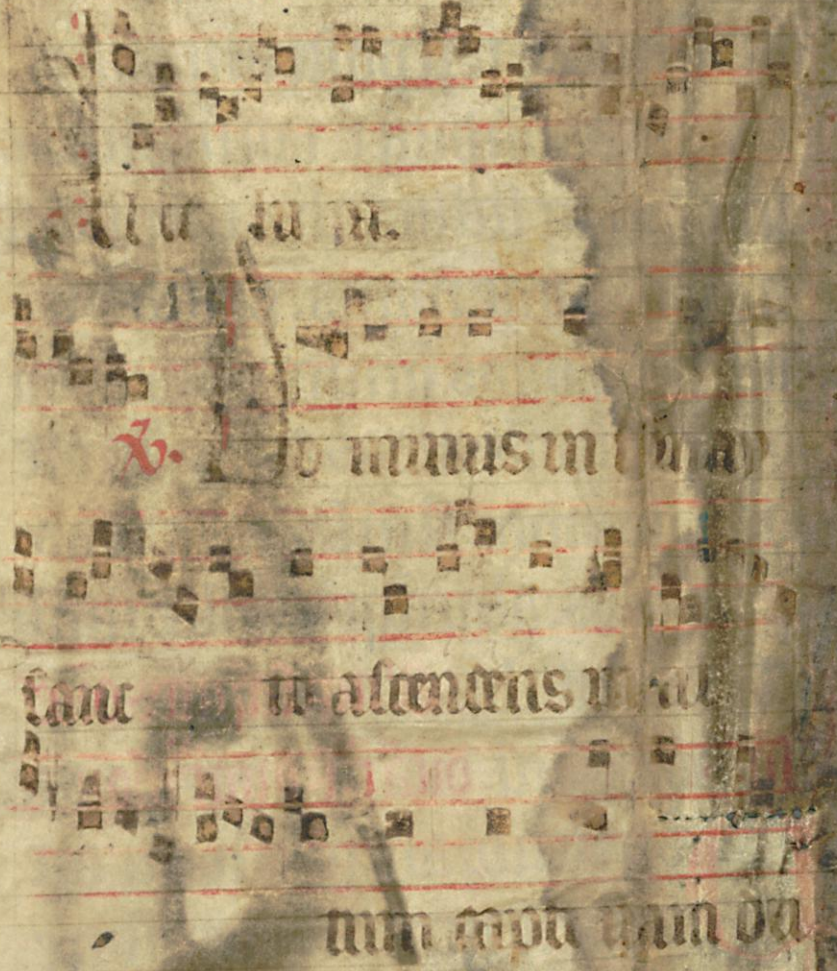 Alle lu ia.
℣. Do minus in synay
sanc to ascendens in al
tum capti uam du